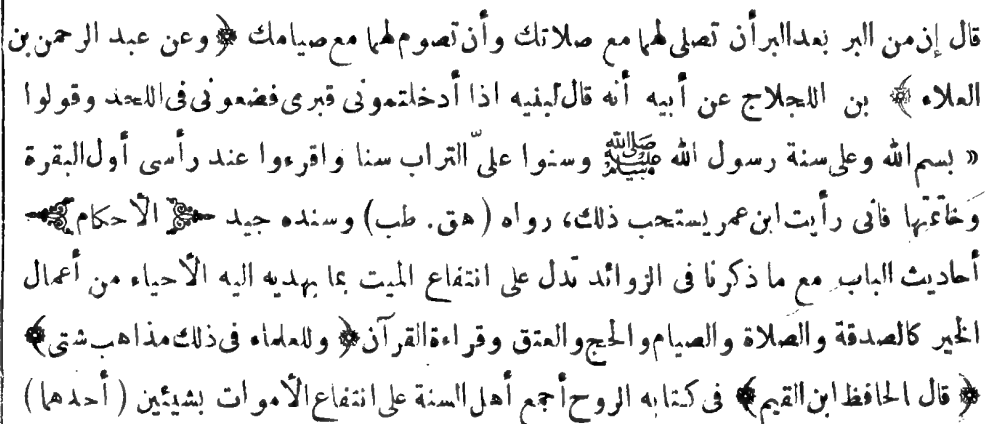 قال إن من البر بعد البر أن تصلى لهما مع صلاتك وأن تصوم لهما مع صيامك ﴿ وعن عبد الرحمن بن
العلاء ﴾ بن اللجلاج عن أبيه أنه قال لبنيه اذا أدخلتمونى قبرى فضعونى فى اللحد وقولوا
« بسم الله وعلى سنة رسول الله ﷺ وسنوا علىّ التراب سنا واقرءوا عند رأسى أول البقرة
وخاتمتها فانى رأيت ابن عمر يستحب ذلك، رواه (هق. طب) وسنده جيد ﴿ الأحكام ﴾
أحاديث الباب مع ما ذكرنا فى الزوائد تدل على انتفاع الميت بما يهديه اليه الأحياء من أعمال
الخير كالصدقة والصلاة والصيام والحج والعتق وقراءة القرآن ﴿ وللعلماء فى ذلك مذاهب شتى ﴾
﴿ قال الحافظ ابن القيم ﴾ فى كتابه الروح أجمع أهل السنة على انتفاع الأموات بشيئين (أحدهما)